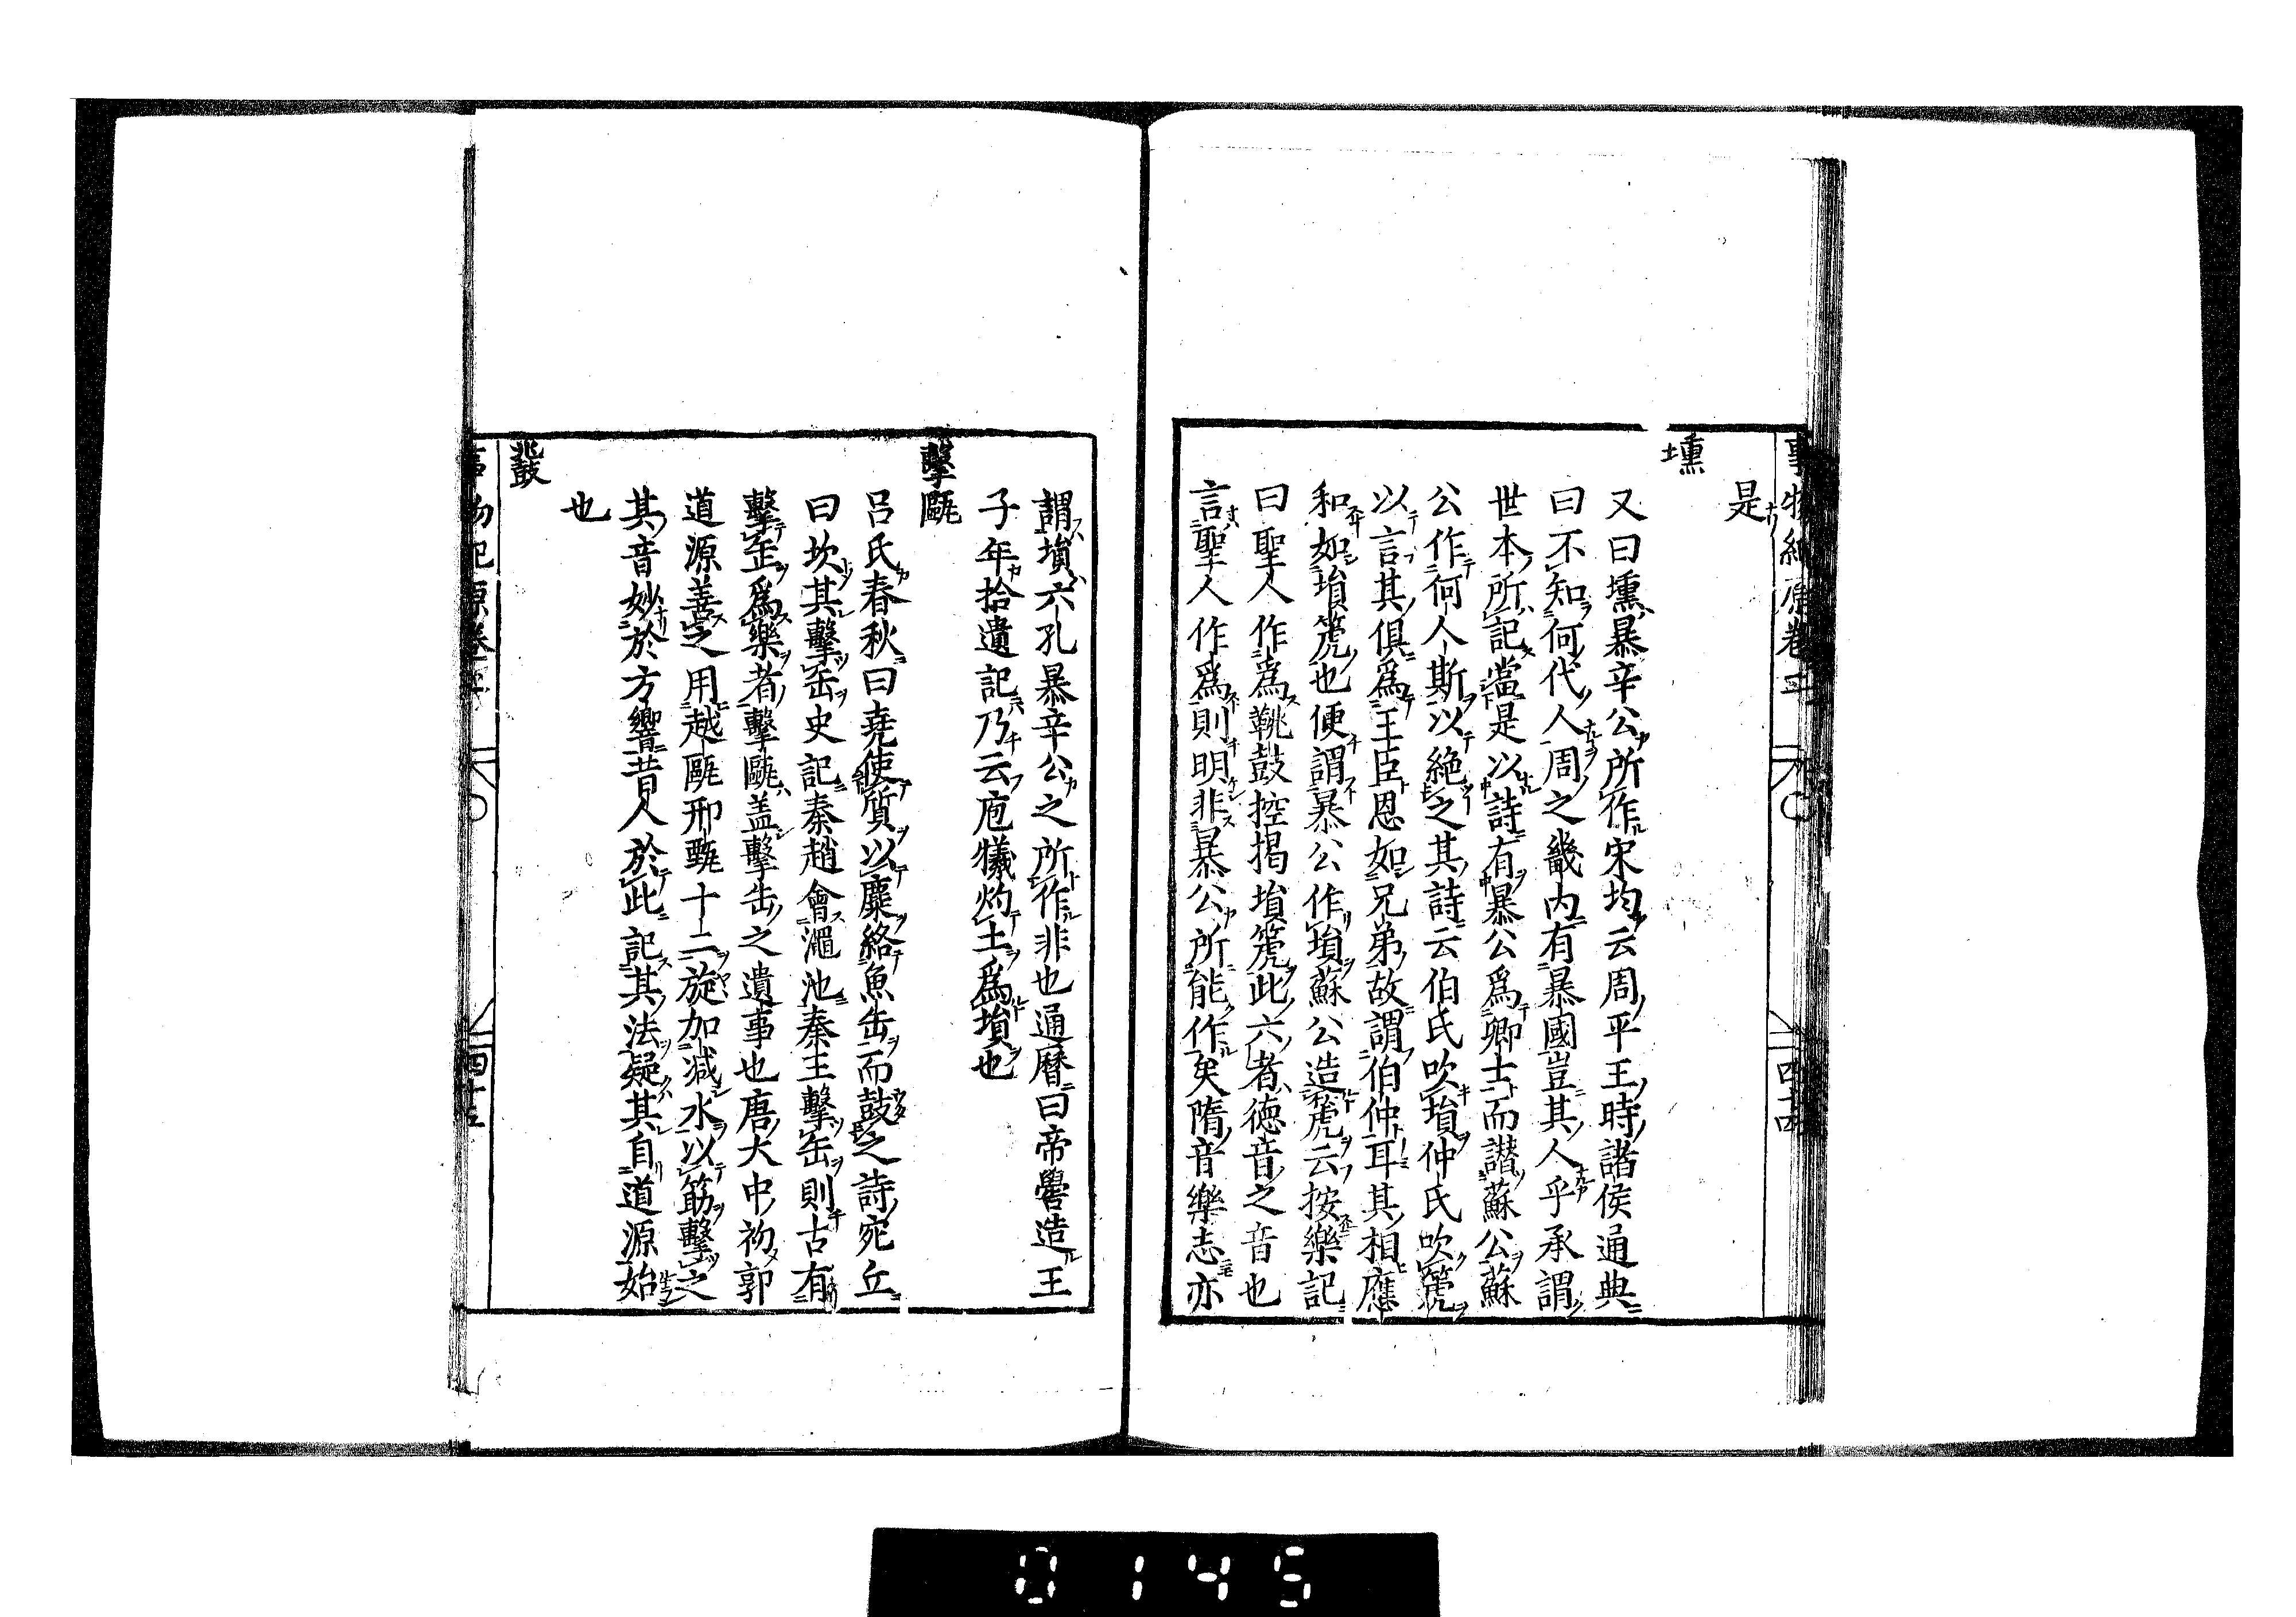 是
壎
又曰壎暴辛公所作宋均云周平王時諸侯通典
曰不知何代人周之畿内有暴國豈其人乎承謂
世本所記當是以詩有暴公爲卿士而譖蘇公蘇
公作何人斯以絶之其詩云伯氏吹塤仲氏吹箎
以言其俱爲王臣恩如兄弟故謂伯仲耳其相應
和如塤箎也便謂暴公作塤蘇公造箎云按樂記
曰聖人作爲鞉鼓控揭塤箎此六者德音之音也
言聖人作爲則明非暴公所能作矣隋音樂志亦
謂塤六孔暴辛公之所作非也通曆曰帝嚳造王
子年拾遺記乃云庖犧灼土爲塤也
擊甌
吕氏春秋曰堯使質以麋絡魚缶而鼓之詩宛丘
曰坎其擊缶史記秦趙會澠池秦王擊缶則古有
擊缶爲樂者擊甌盖擊缶之遺事也唐大中初郭
道源善之用越甌邢甌十二旋加减水以筯擊之
其音妙於方響昔人於此記其法疑其自道源始
也
鼗
四十五
0145